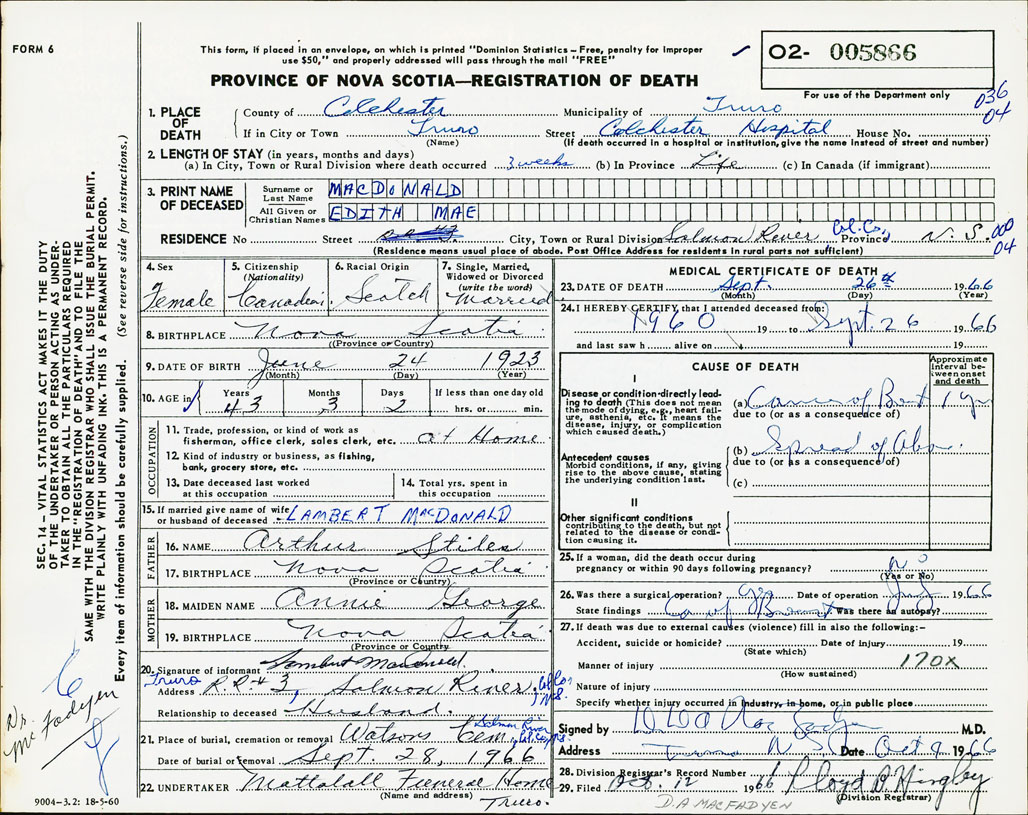 FORM 6
This form, if placed in an envelope, on which is printed "Dominion Statistics - Free, penalty for improper
use $50," and properly addressed will pass through the mail "FREE"
PROVINCE OF NOVA SCOTIA—REGISTRATION OF DEATH
O2- 005866
For use of the Department only
036
04
1. PLACE OF DEATH County of Colchester Municipality of Truro
If in City or Town Truro Street Colchester Hospital House No.
(Name) (If death occurred in a hospital or institution, give the name instead of street and number)
2. LENGTH OF STAY (in years, months and days)
(a) In City, Town or Rural Division where death occurred 3 weeks (b) In Province Life (c) In Canada (if immigrant)
3. PRINT NAME OF DECEASED Surname or Last Name MACDONALD
All Given or Christian Names EDITH MAE
RESIDENCE No Street City, Town or Rural Division Salmon River Col. Co. Province N. S. 000
04
(Residence means usual place of abode. Post Office Address for residents in rural parts not sufficient)
4. Sex Female
5. Citizenship (Nationality) Canadian
6. Racial Origin Scotch
7. Single, Married, Widowed or Divorced (write the word) Married
8. BIRTHPLACE Nova Scotia
(Province or Country)
9. DATE OF BIRTH June 24 1923
(Month) (Day) (Year)
10. AGE in Years 43 Months 3 Days 2 If less than one day old hrs. or min.
OCCUPATION
11. Trade, profession, or kind of work as
fisherman, office clerk, sales clerk, etc. at Home
12. Kind of industry or business, as fishing,
bank, grocery store, etc.
13. Date deceased last worked
at this occupation
14. Total yrs. spent in
this occupation
15. If married give name of wife
or husband of deceased LAMBERT MACDONALD
FATHER
16. NAME Arthur Stiles
17. BIRTHPLACE Nova Scotia
(Province or Country)
MOTHER
18. MAIDEN NAME Annie George
19. BIRTHPLACE Nova Scotia
(Province or Country)
20. Signature of informant Lambert MacDonald.
Truro
Address R.R. #3, Salmon River, Col. Co. N.S.
Relationship to deceased Husband.
21. Place of burial, cremation or removal Watsons Cem. Salmon River Col. Co. N.S.
Date of burial or removal Sept. 28, 1966
22. UNDERTAKER Mattatall Funeral Home
(Name and address) Truro.
MEDICAL CERTIFICATE OF DEATH
23. DATE OF DEATH Sept. 26th 1966
(Month) (Day) (Year)
24. I HEREBY CERTIFY that I attended deceased from:
1960 19 to Sept. 26 1966
and last saw h alive on 19
CAUSE OF DEATH
Approximate interval between onset and death
I
Disease or condition directly leading to death (This does not
mean the mode of dying, e.g., heart failure, asthenia, etc. It means the
disease, injury, or complication
which caused death.)
(a) 1 yr
due to (or as a consequence of)
(b) Spread of
due to (or as a consequence of)
Antecedent causes
Morbid conditions, if any, giving
rise to the above cause, stating
the underlying condition last.
(c)
II
Other significant conditions
contributing to the death, but not
related to the disease or condition causing it.
25. If a woman, did the death occur during
pregnancy or within 90 days following pregnancy? no
(Yes or No)
26. Was there a surgical operation? Date of operation 1966
State findings Ca of Breast Was there an autopsy?
27. If death was due to external causes (violence) fill in also the following:-
Accident, suicide or homicide? Date of injury 19
(State which)
Manner of injury 170X
(How sustained)
Nature of injury
Specify whether injury occurred in industry, in home, or in public place
Signed by M.D.
Address Truro N S Date Oct 9 1966
28. Division Registrar's Record Number
29. Filed Oct. 12 1966
(Division Registrar)
D.A MACFADYEN
SEC. 14 – VITAL STATISTICS ACT MAKES IT THE DUTY
OF THE UNDERTAKER OR PERSON ACTING AS UNDERTAKER TO OBTAIN ALL THE PARTICULARS REQUIRED
IN THE "REGISTRATION OF DEATH" AND TO FILE THE
SAME WITH THE DIVISION REGISTRAR WHO SHALL ISSUE THE BURIAL PERMIT.
WRITE PLAINLY WITH UNFADING INK. THIS IS A PERMANENT RECORD.
Every item of information should be carefully supplied. (See reverse side for instructions.)
Dr.
McFadyen
9004-3.2: 18-5-60